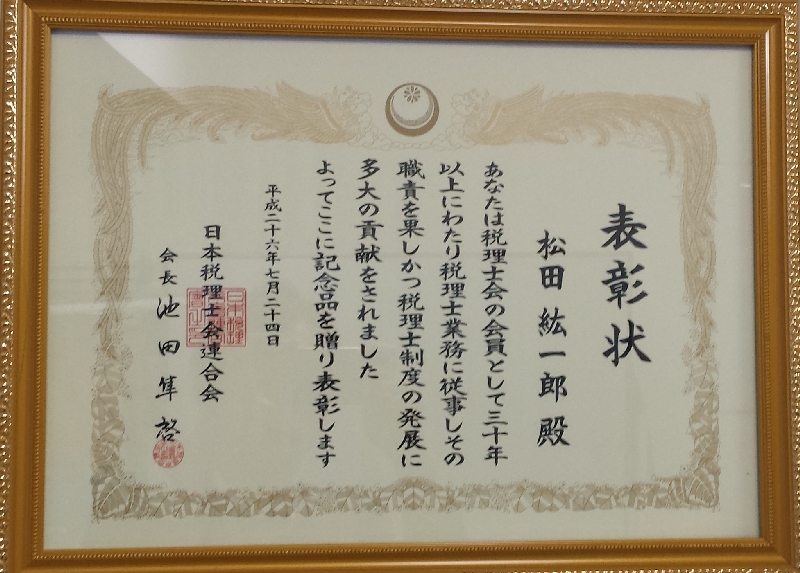 表彰状
松田紘一郎殿
あなたは税理士会の会員として三十年
以上にわたり税理士業務に従事しその
職責を果しかつ税理士制度の発展に
多大の貢献をされました
よってここに記念品を贈り表彰します
平成二十六年七月二十四日
日本税理士会連合会
会長 池田隼啓